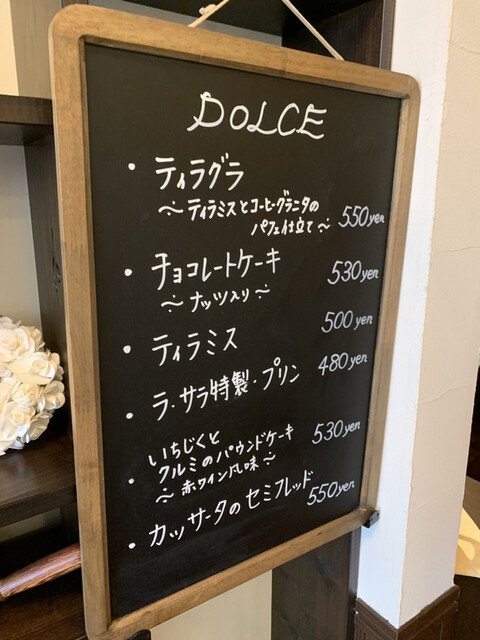 DOLCE
・ティラグラ
〜ティラミスとコーヒーグラニタの
パフェ仕立て〜 550yen
・チョコレートケーキ 530yen
〜ナッツ入り〜
・ティラミス 500yen
・ラ・サラ特製・プリン 480yen
いちじくと
・クルミのパウンドケーキ 530yen
〜赤ワイン風味〜
・カッサータのセミフレッド 550yen